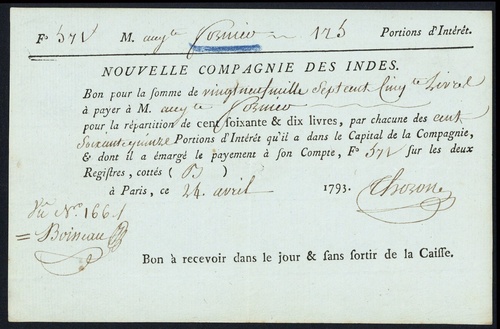 Fº 571 M. augte 175 Portions d'Intérêt.
NOUVELLE COMPAGNIE DES INDES.
Bon pour la somme de vingtneufmille Septcent Cinqte Livres
à payer à M. augte
pour la répartition de cent soixante & dix livres, par chacune des cent
Soixantequinze Portions d'Intérêt qu'il a dans le Capital de la Compagnie,
& dont il a émargé le payement à son Compte, Fº 571 sur les deux
Registres, cottés (
à Paris, ce 24 avril 1793.
Vu Nº 1661
= Boisseau
Bon à recevoir dans le jour & sans sortir de la Caisse.